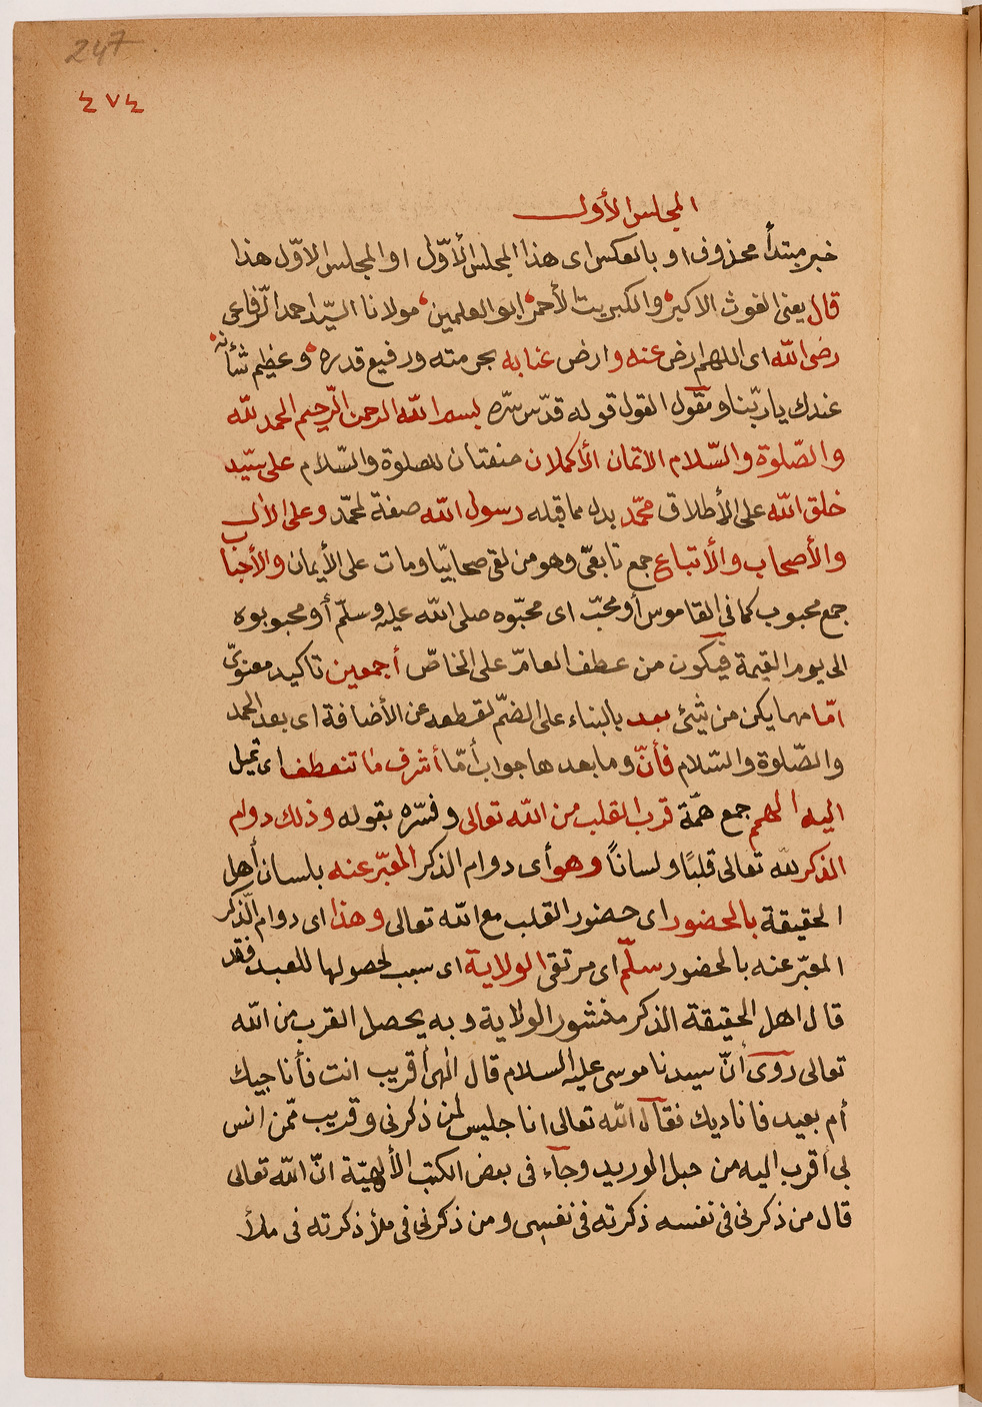 247
٤٧٤
المجلس الأول
خبر مبتدأ محذوف او بالعكس اى هذا المجلس الأوّل او المجلس الاوّل هذا
قال يعنى الغوث الاكبر والكبريت الأحمر ابو العلمين مولانا السيّد احمد الرّفاعى
رضى اللّه اى اللهم ارض عنه وارض عنا به بحرمته ورفيع قدره وعظيم شأنه
عندك يا ربّنا ومقول القول قوله قدّس سرّه بسم اللّه الرحمن الرّحيم الحمد للّه
والصّلوة والسّلام الاتمان الأكملان صفتان للصلوة والسّلام على سيّد
خلق اللّه على الأطلاق محمّد بدل مما قبله رسول اللّه صفة لمحمّد وعلى الأل
والأصحاب والأتباع جمع تابعىّ وهو من لقى صحابيّا ومات على الأيمان والأحباب
جمع محبوب كما فى القاموس أو محبّ اى محبّوه صلى اللّه عليه وسلّم أو محبوبوه
الى يوم القيمة فيكون من عطف العامّ على الخاصّ أجمعين تاكيد معنوىّ
امّا مهما يكن من شئ بعد بالبناء على الضمّ لقطعه عن الأضافة اى بعد الحمد
والصّلوة والسّلام فأنّ وما بعدها جواب أمّا أشرف ما تنعطف اى تميل
اليه الهمم جمع همّة قرب القلب من اللّه تعالى وفسّره بقوله وذلك دوام
الذكر للّه تعالى قلبًا ولسانًا وهو أى دوام الذكر المعبّر عنه بلسان أهل
الحقيقة بالحضور اى حضور القلب مع اللّه تعالى وهذا اى دوام الذّكر
المعبّر عنه بالحضور سلّم اى مرتقى الولاية اى سبب لحصولها للعبد فقد
قال اهل الحقيقة الذكر منشور الولاية وبه يحصل القرب من اللّه
تعالى روى أنّ سيدنا موسى عليه السلام قال الهى أقريب انت فأناجيك
أم بعيد فاناديك فقال اللّه تعالى انا جليس لمن ذكرنى وقريب ممّن انس
بى أقرب اليه من حبل الوريد وجاء فى بعض الكتب الألهيّة انّ اللّه تعالى
قال من ذكرنى فى نفسه ذكرته فى نفسى ومن ذكرنى فى ملأ ذكرته فى ملأ